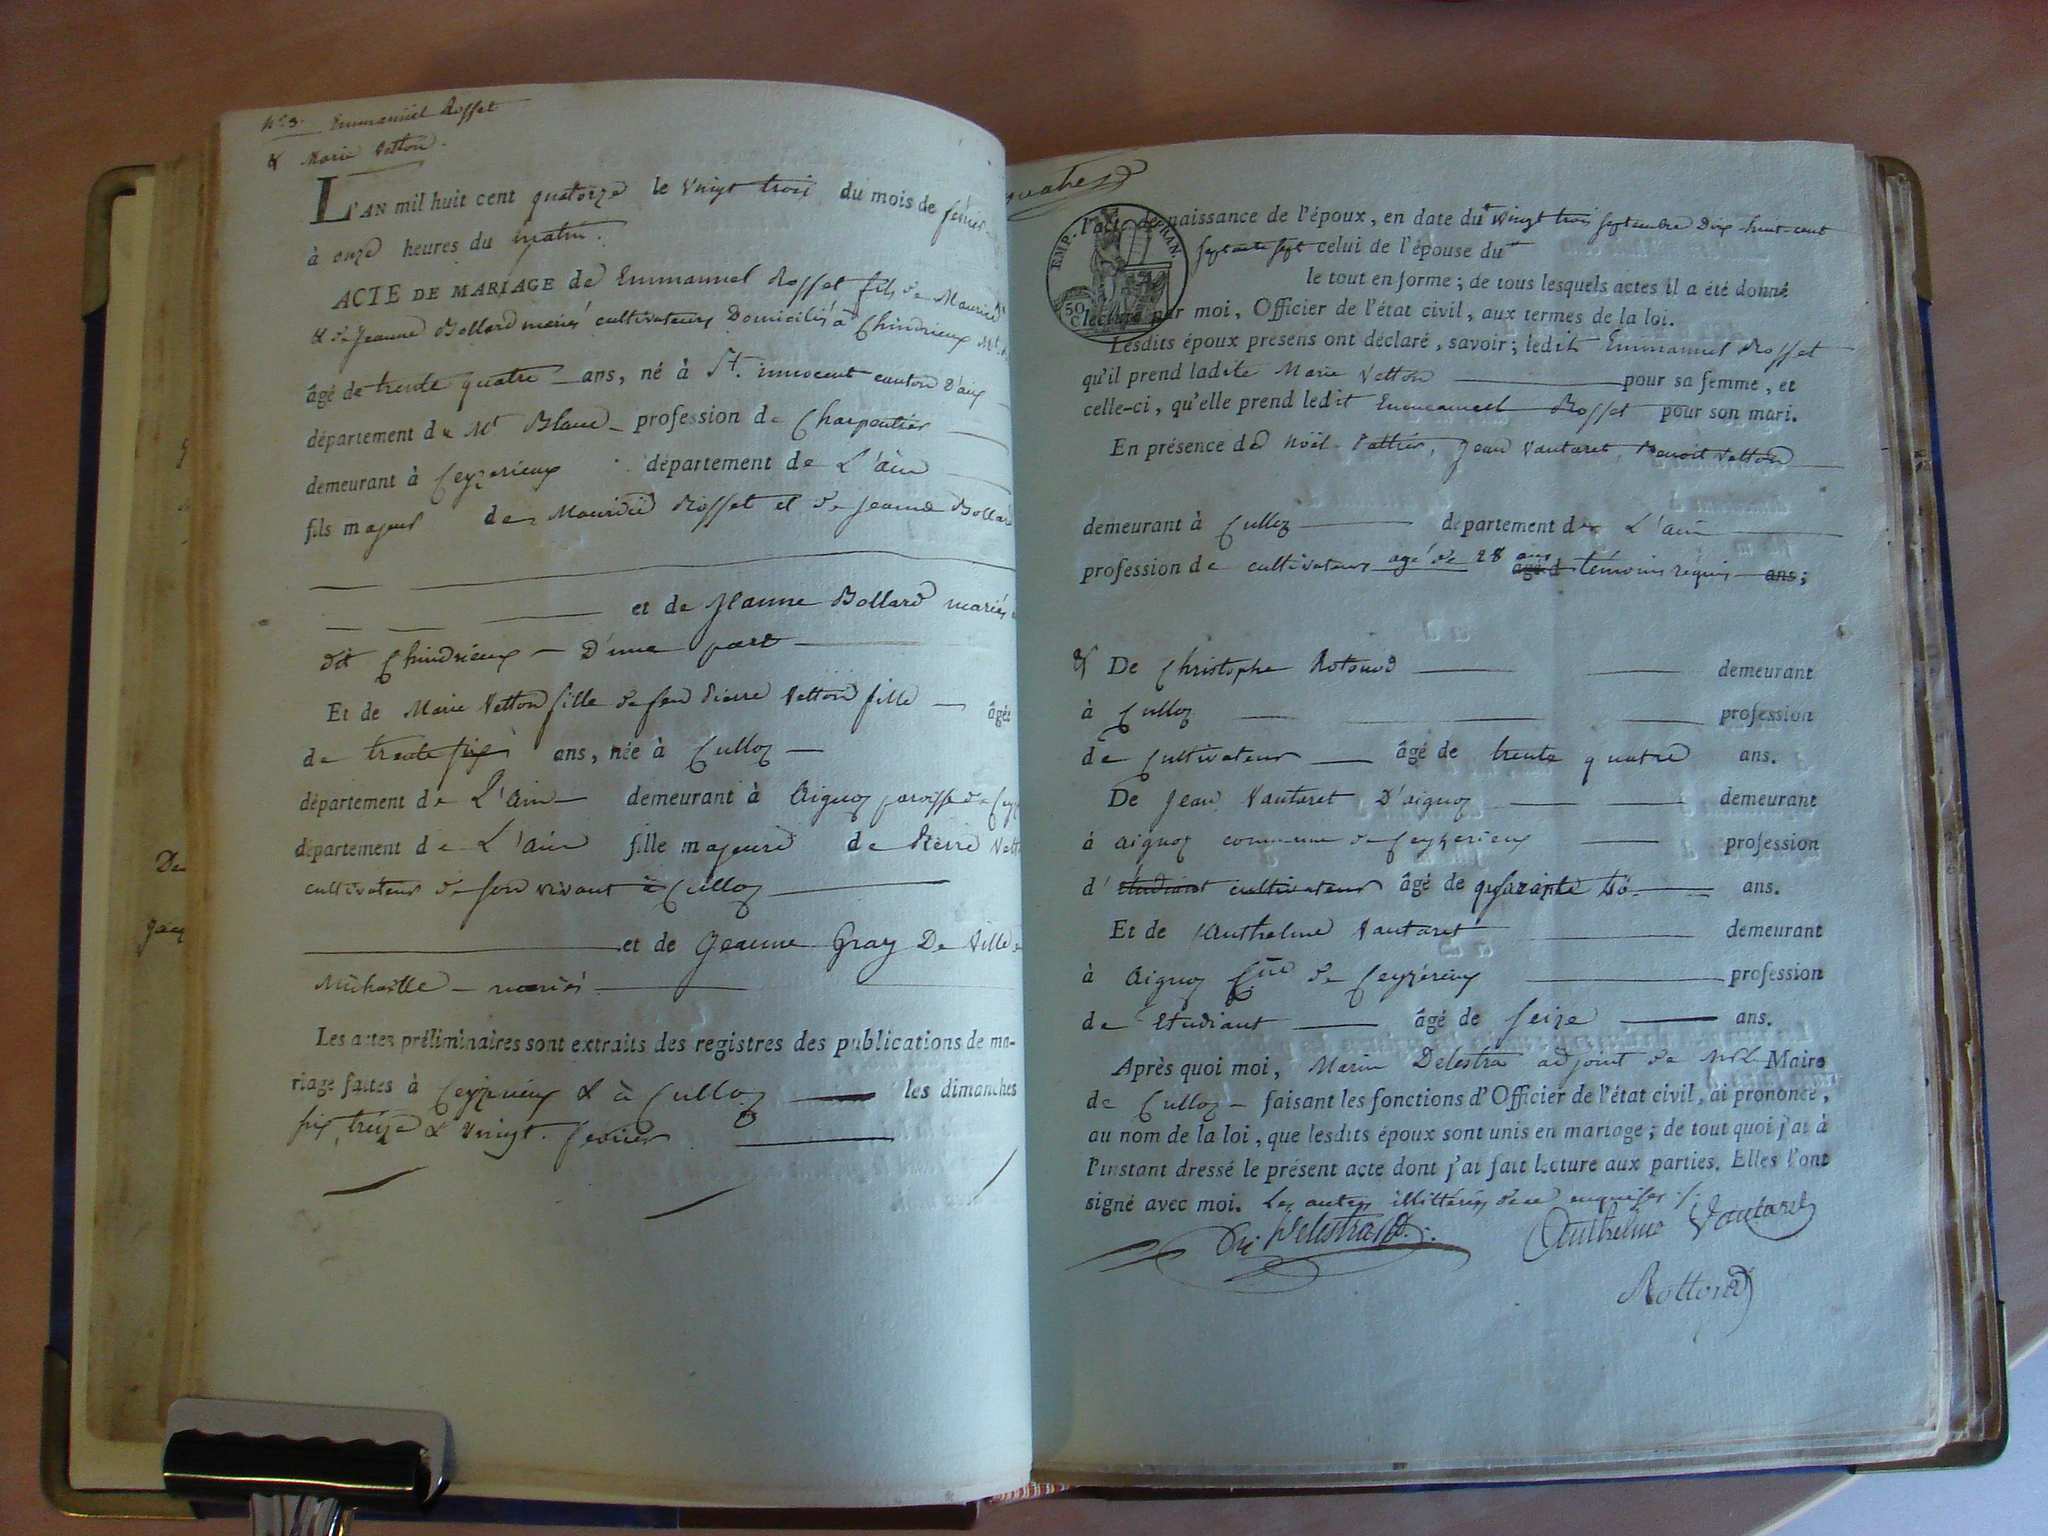 De
Jacq
N.º 3. Emmanüel Rosset
& Marie Vetton.
L'AN mil huit cent quatorze le vingt trois du mois de fevrier
à onze heures du matin.
ACTE DE MARIAGE de Emmanuel Rosset fils de Maurice
& de Jeanne Bollard mariés cultivateurs Domiciliés à Chindrieux Mt.
âgé de trente quatre ans, né à St. innocent canton D'aix
département de Mt Blanc profession de Charpentier
demeurant à Ceyzerieux département de L'ain
fils majeur de Mauricë Rosset et de Jeanne Bollard
et de Jeanne Bollard mariés
dt Chindrieux D'une part
Et de Marie Vetton fille de feu Pierre Vetton fille âgée
de trente six ans, née à Culloz
département de L'Ain demeurant à Aignoz paroisse de Cey
département de L'Ain fille majeure de Pierre Vett
cultivateur de son vivant à Culloz
et de Jeanne Gray De Ville
Michaille mariés
Les actes préliminaires sont extraits des registres des publications de ma-
riage faites à Ceyzerieux & à Culloz les dimanches
six, treize & vingt fevrier
quatre
EMP. FRAN.
50 C
l'acte de naissance de l'époux, en date du vingt trois septembre Dix-huit-cent
septante sept celui de l'épouse du
le tout en forme; de tous lesquels actes il a été donné
lecture par moi, Officier de l'état civil, aux termes de la loi.
Lesdits époux présens ont déclaré, savoir; ledit Emmanuel Rosset
qu'il prend ladite Marie Vetton pour sa femme, et
celle-ci, qu'elle prend ledit Emmanuel Rosset pour son mari.
En présence de Noël Pattier, Jean Vautaret, Benoit Vetton
demeurant à Culloz département de L'ain
profession de cultivateurs agé de 28 ans agé d témoins réquis ans;
& De Christophe Rotoned demeurant
à Culloz profession
de Cultivateur âgé de trente quatre ans.
De Jean Vautaret D'aignoz demeurant
à aignoz commune de Ceyzerieux profession
d' étudiant cultivateur âgé de quarante ans.
Et de Anthelme Vautaret demeurant
à Aignoz Cne de Ceyzérieux profession
de Etudiant âgé de seize ans.
Après quoi moi, Marin Delestra adjoint de Mr le Maire
de Culloz faisant les fonctions d'Officier de l'état civil, ai prononcé,
au nom de la loi, que lesdits époux sont unis en mariage; de tout quoi j'ai à
l'instant dressé le présent acte dont j'ai fait lecture aux parties. Elles l'ont
signé avec moi. Les autres illittérés de ce enquises
Delestra Anthelme Vautaret
Rottoned